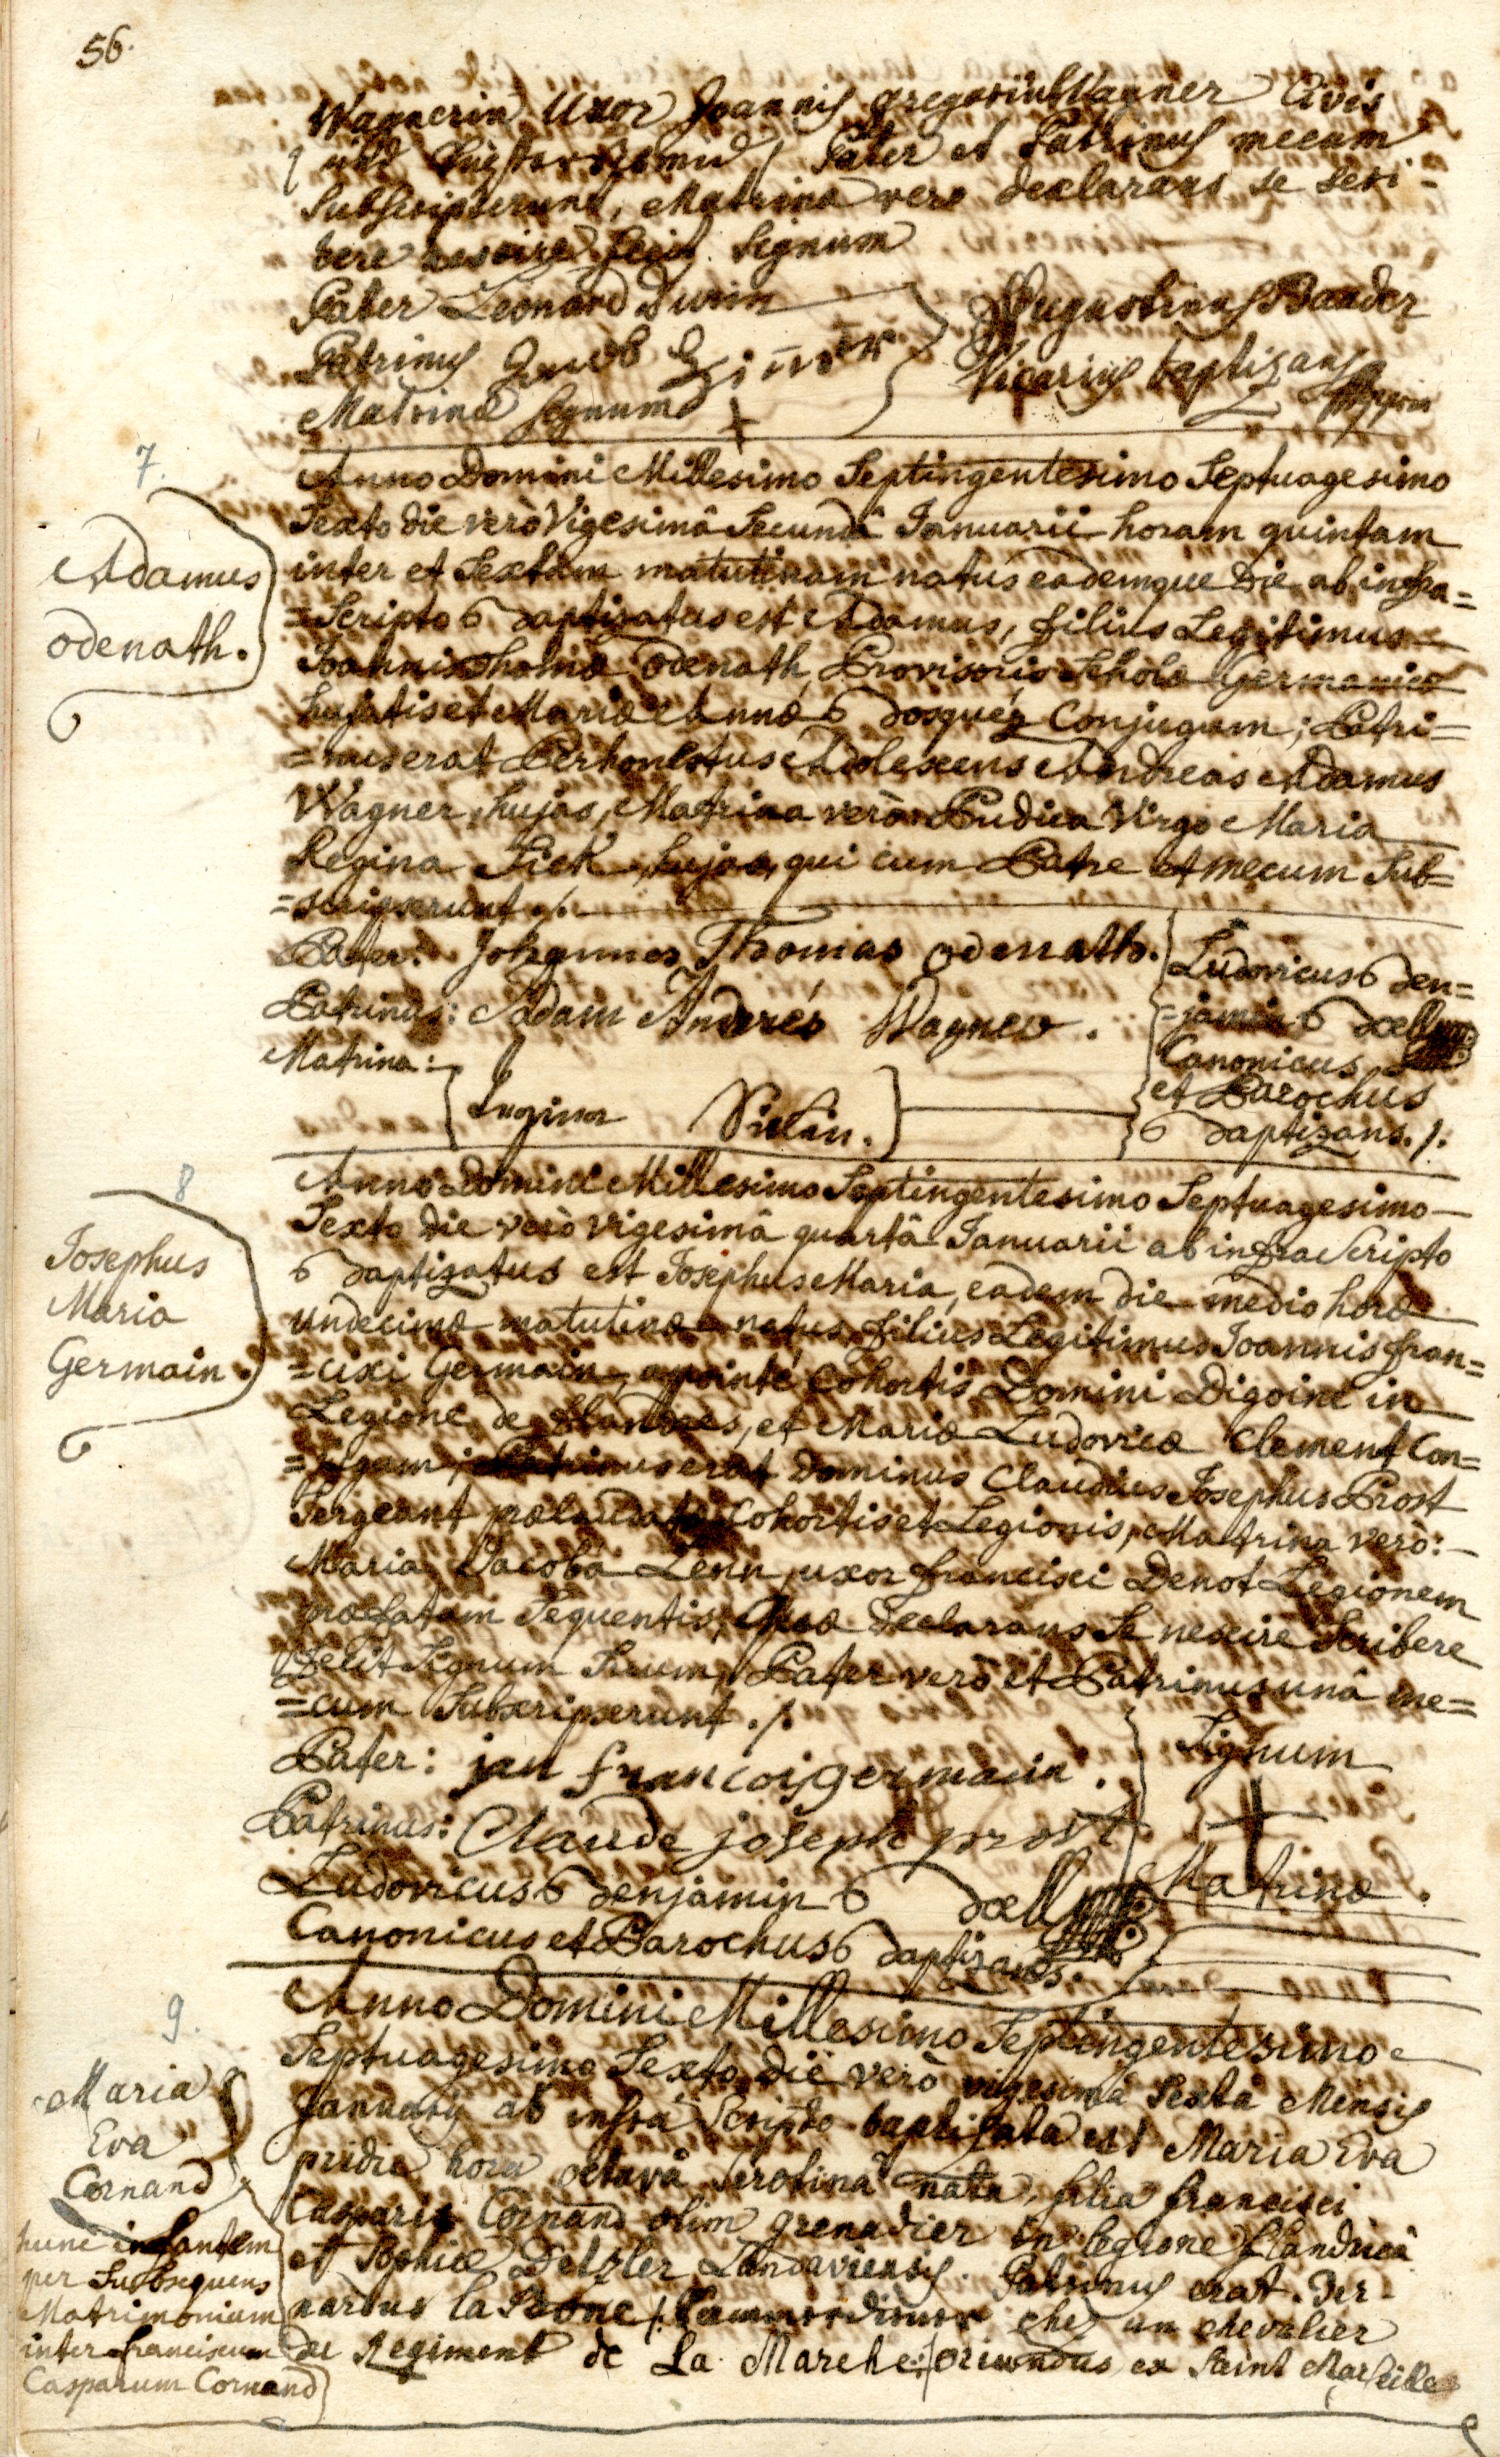 56.
Wagnerin Uxor Joannis gregorii Wagner Civis
Pater et Patrinus mecum
Subscripserunt, Matrina vero declarans se scri-
bere nescire fecit Signum
Pater Leonard Durin
Patrinus Jacob
Matrinæ Signum +
Augustinus Bander
Vicarius baptizans
7.
Adamus
Odenath.
Anno Domini Millesimo Septingentesimo Septuagesimo
Sexto die verò Vigesimâ Secundâ Januarii horam quintam
inter et Sextam matutinam natus eademque die ab infra=
=Scripto Baptizatus est Adamus, filius Legitimus
Joannis Thomæ Odenath, Provisoris Scholæ Germanicæ
hujatis et Mariæ Annæ Bosquéz Conjugum; Patri=
=nus erat Perhonestus Adolescens Andreas Adamus
Wagner, hujas, Matrina verò Pudica Virgo Maria
Regina Fick, hujas, qui cum Patre et mecum Sub=
=scripserunt ./.
Pater: Johannes Thomas Odenath.
Patrinus: Adam Andres Wagner.
Matrina:
Ludovicus Ben=
=jamin Boell
Canonicus
et Parochus
Baptizans ./.
8
Josephus
Maria
Germain.
Anno Domini Millesimo Septingentesimo Septuagesimo
Sexto die verò Vigesimâ quartâ Januarii ab infra Scripto
Baptizatus est Josephus Maria, eadem die medio horæ
undecimæ matutinæ natus, filius Legitimus Joannis fran=
=cisci Germain, apointé Cohortis Domini Digoine in
Legione de flandres, et Mariæ Ludovicæ Clement Con=
=jugum; Patrinus erat Dominus Claudius Josephus Prost
Sergeant prælaudatæ Cohortis et Legionis, Matrina verò:
Maria Jacoba Lenn, uxor francisci Denot Legionem
præfatam Sequentis, Quæ declarans Se nescire Scribere
fecit Signum Suum, Pater verò et Patrinus unâ me=
=cum Subscripserunt ./.
Pater: jan francois germain.
Patrinus: Claude joseph prost
Ludovicus Benjamin Boell
Canonicus et Parochus Baptizans.
Signum
+
Matrinæ.
9.
Maria
Eva
Cornand
hunc infantem
per Subsequens
Matrimonium
inter franciscum
Casparum Cornand
Anno Domini Millesimo Septingentesimo
Septuagesimo Sexto die verò vigesimâ Sextâ Mensis
Januarij ab infrà Scripto baptisata est Maria Eva
pridie hora octavâ Serotinâ nata, filia francisci
Casparis Cornand olim grenadier in legione flandricâ
et Sophiæ Detzler Landaviensis. Patrinus erat Ber-
nardus la Bonc chez un chevalier
de Regiment de La Marche, oriundus ex Saint Marseille